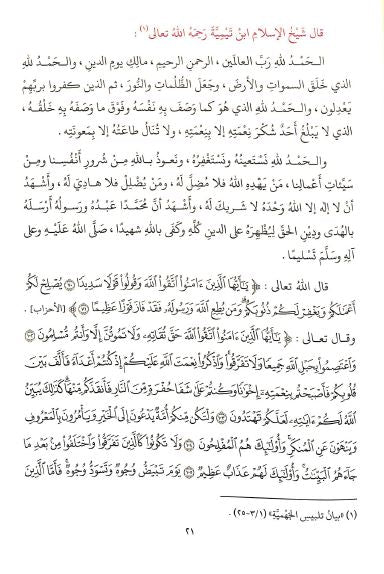 قال شَيْخُ الإسلامِ ابنُ تَيْمِيَّةَ رَحِمَهُ اللهُ تعالى(١) :
الحَمْدُ للهِ رَبِّ العالَمين، الرحمنِ الرحيمِ، مالِكِ يومِ الدينِ، والحَمْدُ للهِ
الذي خَلَقَ السمواتِ والأرضَ، وجَعَلَ الظُّلُماتِ والنُّورَ، ثم الذين كفروا بربِّهِمْ
يَعْدِلون، والحَمْدُ للهِ الذي هُوَ كما وَصَفَ بِهِ نَفْسَهُ وفَوْقَ ما وَصَفَهُ بِهِ خَلْقُهُ،
الذي لا يَبْلُغُ أَحَدٌ شُكْرَ نِعْمَتِهِ إلا بِنِعْمَتِهِ، ولا تُنالُ طاعَتُهُ إلا بِمَعونَتِهِ.
والحَمْدُ للهِ نَسْتَعينُهُ ونَسْتَغْفِرُهُ، ونَعوذُ باللهِ مِنْ شُرورِ أَنْفُسِنا ومِنْ
سَيِّئاتِ أَعْمالِنا، مَنْ يَهْدِهِ اللهُ فلا مُضِلَّ لَهُ، ومَنْ يُضْلِلْ فلا هادِيَ لَهُ، وأَشْهَدُ
أنْ لا إلهَ إلا اللهُ وَحْدَهُ لا شريكَ لَهُ، وأَشْهَدُ أنَّ مُحَمَّدًا عَبْدُهُ ورَسولُهُ أَرْسَلَهُ
بالهُدى ودِينِ الحَقِّ لِيُظْهِرَهُ على الدينِ كُلِّهِ وكَفى باللهِ شهيدًا، صَلَّى اللهُ عَلَيْهِ وعلى
آلِهِ وسَلَّمَ تَسْليمًا.
قال اللهُ تعالى : ﴿ يَٰٓأَيُّهَا ٱلَّذِينَ ءَامَنُوا۟ ٱتَّقُوا۟ ٱللَّهَ وَقُولُوا۟ قَوْلًا سَدِيدًا ۝٧٠ يُصْلِحْ لَكُمْ
أَعْمَٰلَكُمْ وَيَغْفِرْ لَكُمْ ذُنُوبَكُمْ ۗ وَمَن يُطِعِ ٱللَّهَ وَرَسُولَهُۥ فَقَدْ فَازَ فَوْزًا عَظِيمًا ۝٧١ ﴾ [الأحزاب].
وقال تعالى : ﴿ يَٰٓأَيُّهَا ٱلَّذِينَ ءَامَنُوا۟ ٱتَّقُوا۟ ٱللَّهَ حَقَّ تُقَاتِهِۦ وَلَا تَمُوتُنَّ إِلَّا وَأَنتُم مُّسْلِمُونَ ۝١٠٢
وَٱعْتَصِمُوا۟ بِحَبْلِ ٱللَّهِ جَمِيعًا وَلَا تَفَرَّقُوا۟ ۚ وَٱذْكُرُوا۟ نِعْمَتَ ٱللَّهِ عَلَيْكُمْ إِذْ كُنتُمْ أَعْدَآءً فَأَلَّفَ بَيْنَ
قُلُوبِكُمْ فَأَصْبَحْتُم بِنِعْمَتِهِۦٓ إِخْوَٰنًا وَكُنتُمْ عَلَىٰ شَفَا حُفْرَةٍ مِّنَ ٱلنَّارِ فَأَنقَذَكُم مِّنْهَا ۗ كَذَٰلِكَ يُبَيِّنُ
ٱللَّهُ لَكُمْ ءَايَٰتِهِۦ لَعَلَّكُمْ تَهْتَدُونَ ۝١٠٣ وَلْتَكُن مِّنكُمْ أُمَّةٌ يَدْعُونَ إِلَى ٱلْخَيْرِ وَيَأْمُرُونَ بِٱلْمَعْرُوفِ
وَيَنْهَوْنَ عَنِ ٱلْمُنكَرِ ۚ وَأُو۟لَٰٓئِكَ هُمُ ٱلْمُفْلِحُونَ ۝١٠٤ وَلَا تَكُونُوا۟ كَٱلَّذِينَ تَفَرَّقُوا۟ وَٱخْتَلَفُوا۟ مِنۢ بَعْدِ مَا
جَآءَهُمُ ٱلْبَيِّنَٰتُ ۚ وَأُو۟لَٰٓئِكَ لَهُمْ عَذَابٌ عَظِيمٌ ۝١٠٥ يَوْمَ تَبْيَضُّ وُجُوهٌ وَتَسْوَدُّ وُجُوهٌ ۚ فَأَمَّا ٱلَّذِينَ
(١) «بيانُ تلبيسِ الجَهْمِيَّةِ» (٣/١-٢٥) .
٢١